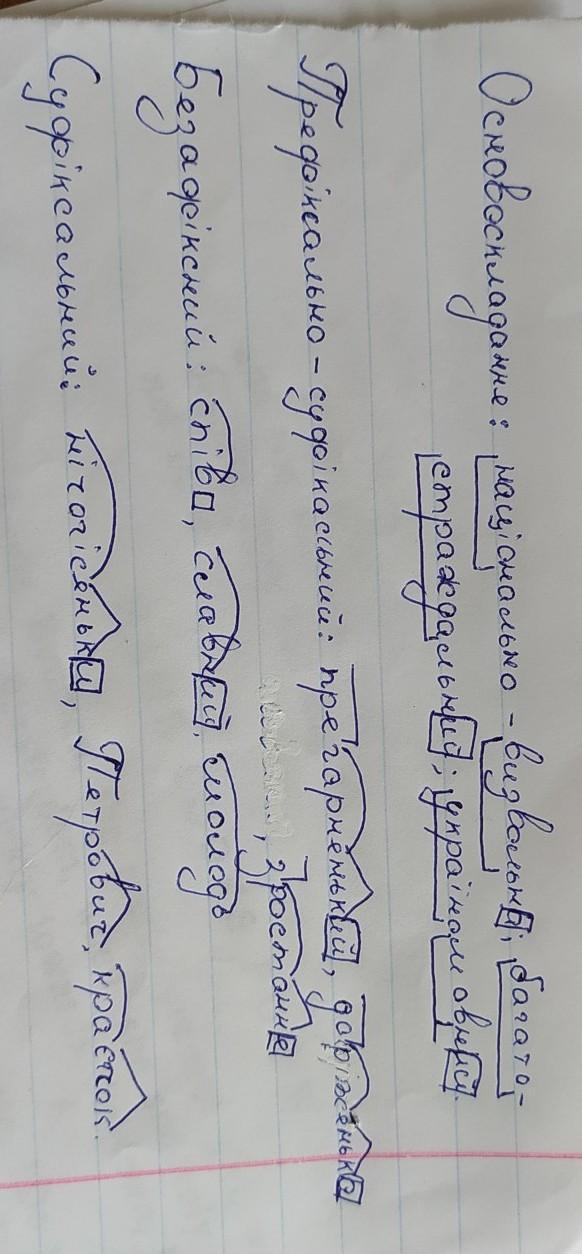 Основоскладання: національно-визвольне; багато-
стражадальний; україномовний.
Префіксально-суфіксальний: прегарненький, доріженька
, зростання
Безафіксний: спів, славний, молодь
Суфіксальний: нічогісеньки, Петрович, краєчок.